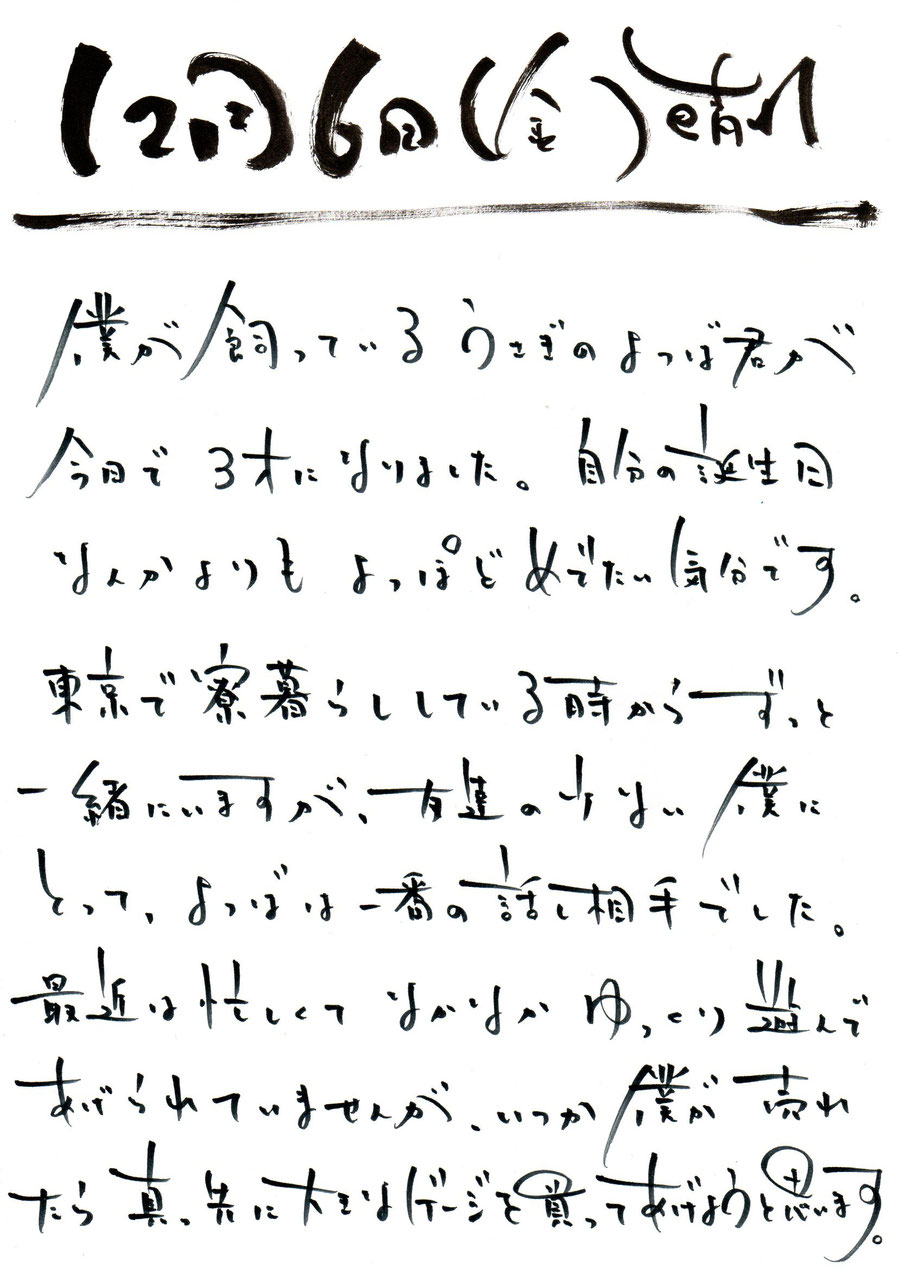 12月6日(金)晴れ
僕が飼っているうさぎのよつば君が
今日で3才になりました。自分の誕生日
なんかよりもよっぽどめでたい気分です。
東京で寮暮らししている時からずっと
一緒にいますが、友達の少ない僕に
とって、よつばは一番の話し相手でした。
最近は忙しくてなかなかゆっくり遊んで
あげられていませんが、いつか僕が売れ
たら真っ先に大きなゲージを買ってあげようと思います。